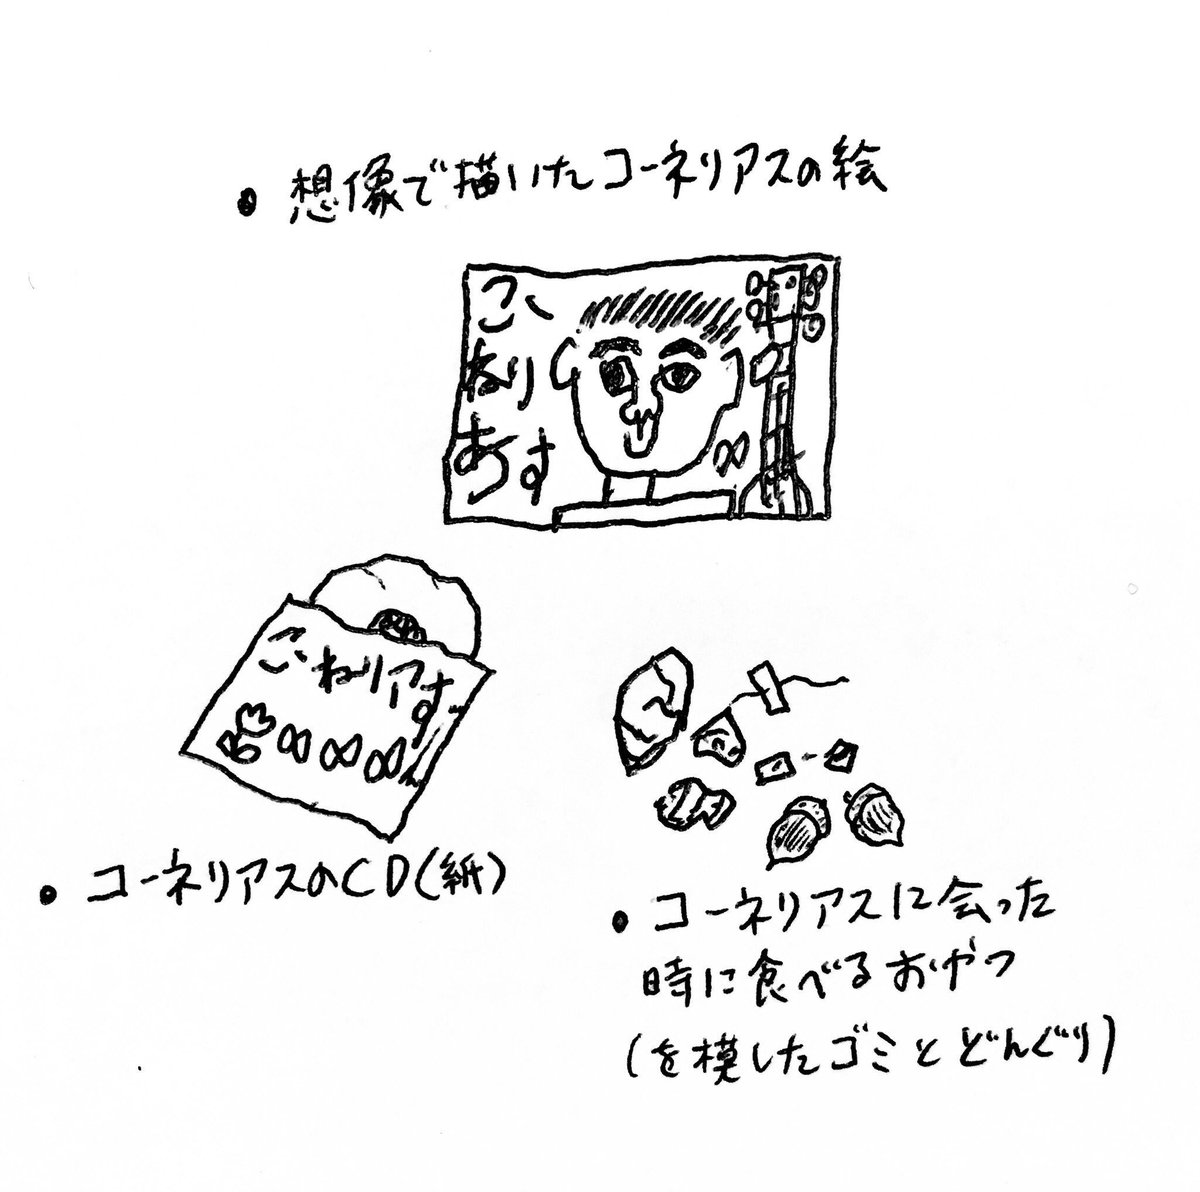 • 想像で描いたコーネリアスの絵
こ、
ねり
あす
こ、ねりアす
• コーネリアスのCD(紙)
• コーネリアスに会った
時に食べるおやつ
(を模したゴミとどんぐり)